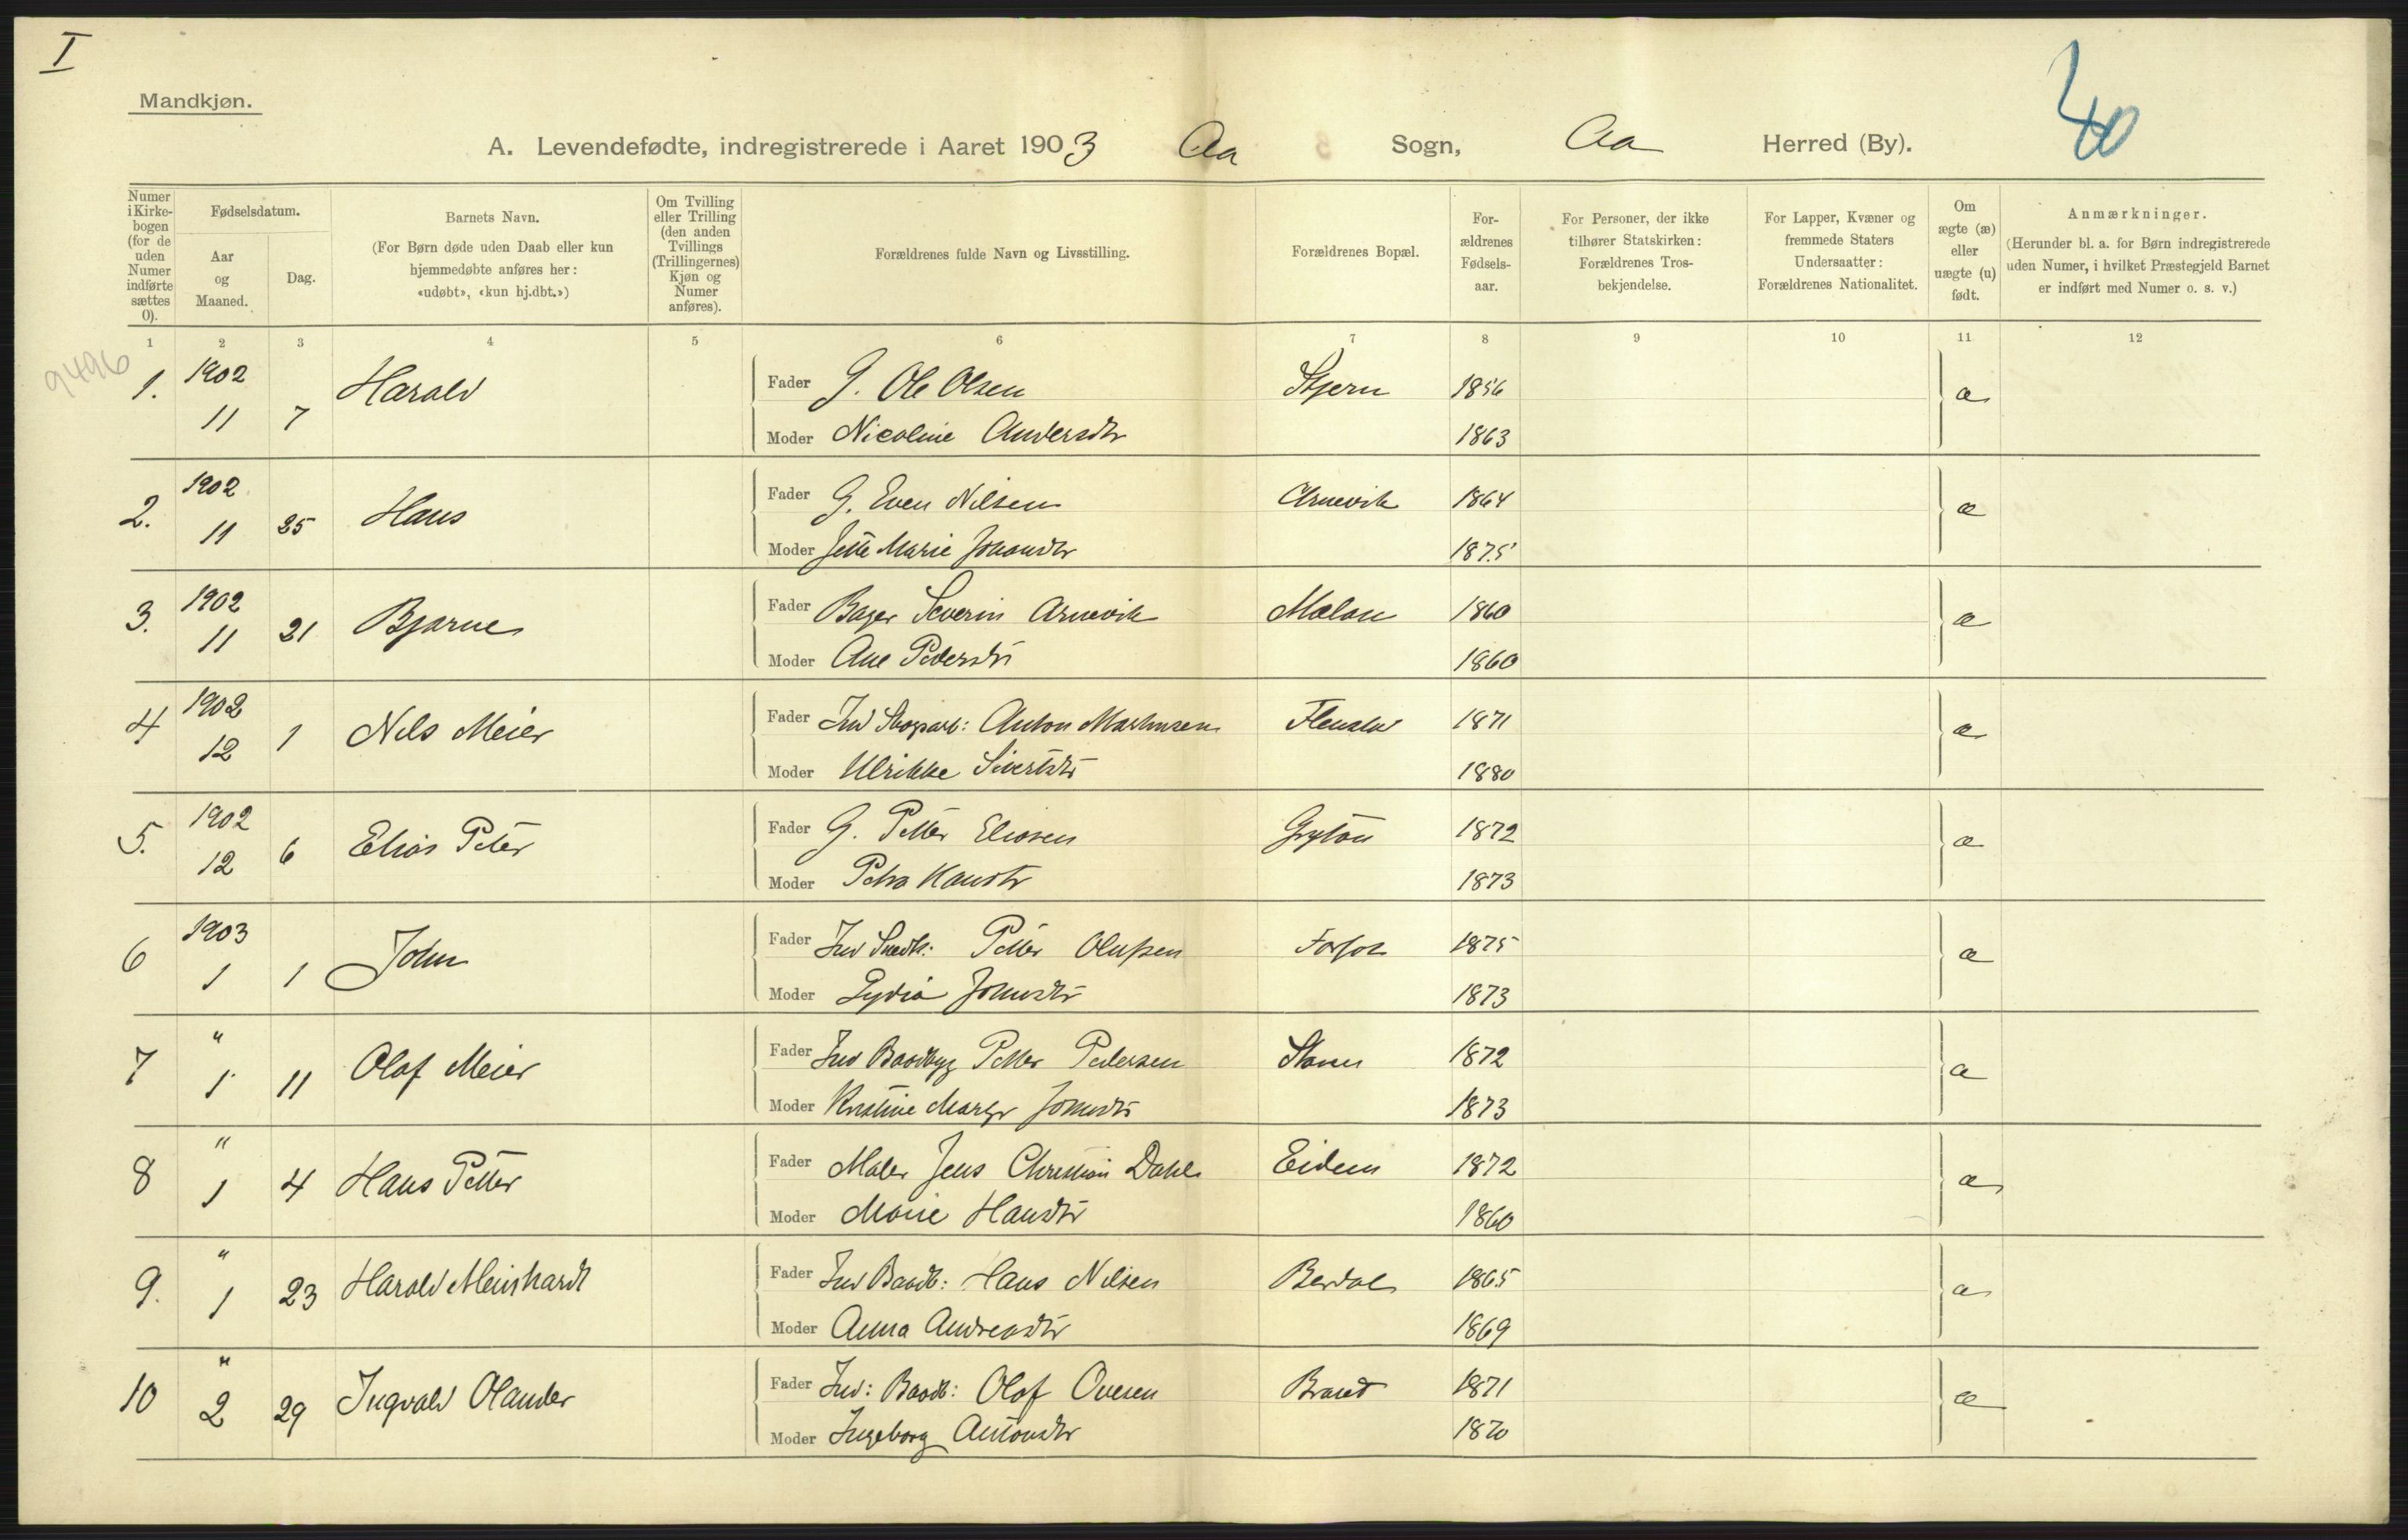 I
Mandkjøn.
40
A. Levendefødte, indregistrerede i Aaret 1903 Aa Sogn, Aa Herred (By).
Numer i Kirke-bogen (for de uden Numer indførte sættes 0).
Fødselsdatum.
Aar og Maaned.
Dag.
Barnets Navn.
(For Børn døde uden Daab eller kun hjemmedøbte anføres her: «udøbt», «kun hj.dbt.»)
Om Tvilling eller Trilling (den anden Tvillings (Trillingernes) Kjøn og Numer anføres).
Forældrenes fulde Navn og Livsstilling.
Forældrenes Bopæl.
For-ældrenes Fødsels-aar.
For Personer, der ikke tilhører Statskirken: Forældrenes Tros-bekjendelse.
For Lapper, Kvæner og fremmede Staters Undersaatter: Forældrenes Nationalitet.
Om ægte (æ) eller uægte (u) født.
Anmærkninger.
(Herunder bl. a. for Børn indregistrerede uden Numer, i hvilket Præstegjeld Barnet er indført med Numer o. s. v.)
1 2 3 4 5 6 7 8 9 10 11 12
9496
1. 1902 11 7 Harald Fader G. Ole Olsen Stjern 1856 æ
Moder Nicoline Andersdtr 1863
2. 1902 11 25 Hans Fader G. Even Nilsen Arnevik 1864 æ
Moder Jette Marie Johansdtr 1875
3. 1902 11 21 Bjarne Fader Bager Severin Arnevik Mælan 1860 æ
Moder Ane Pedersdtr 1860
4 1902 12 1 Nils Meier Fader Ind Skogarb: Anton Martinsen 1871 æ
Moder Ulrikke Sivertsdtr 1880
5. 1902 12 6 Elias Peter Fader G. Petter Eliasen Grytan 1872 æ
Moder Petra Hansdtr 1873
6 1903 1 1 John Fader Ind Snedk: Petter Olufsen 1875 æ
Moder Lydia Johnsdtr 1873
7 " 1 11 Olaf Meier Fader Ind Baadbyg Petter Pedersen 1872 æ
Moder Kristine Margr Johnsdtr 1873
8 " 1 4 Hans Petter Fader Maler Jens Christian Dahl Eidem 1872 æ
Moder Marie Hansdtr 1860
9. " 1 23 Harald Meinhardt Fader Ind Baadb: Hans Nilsen Berdal 1865 æ
Moder Anna Andreasdtr 1869
10 " 2 29 Ingvald Olander Fader Ind: Baadb: Olaf Ovesen 1871 æ
Moder Ingeborg Antonsdtr 1870